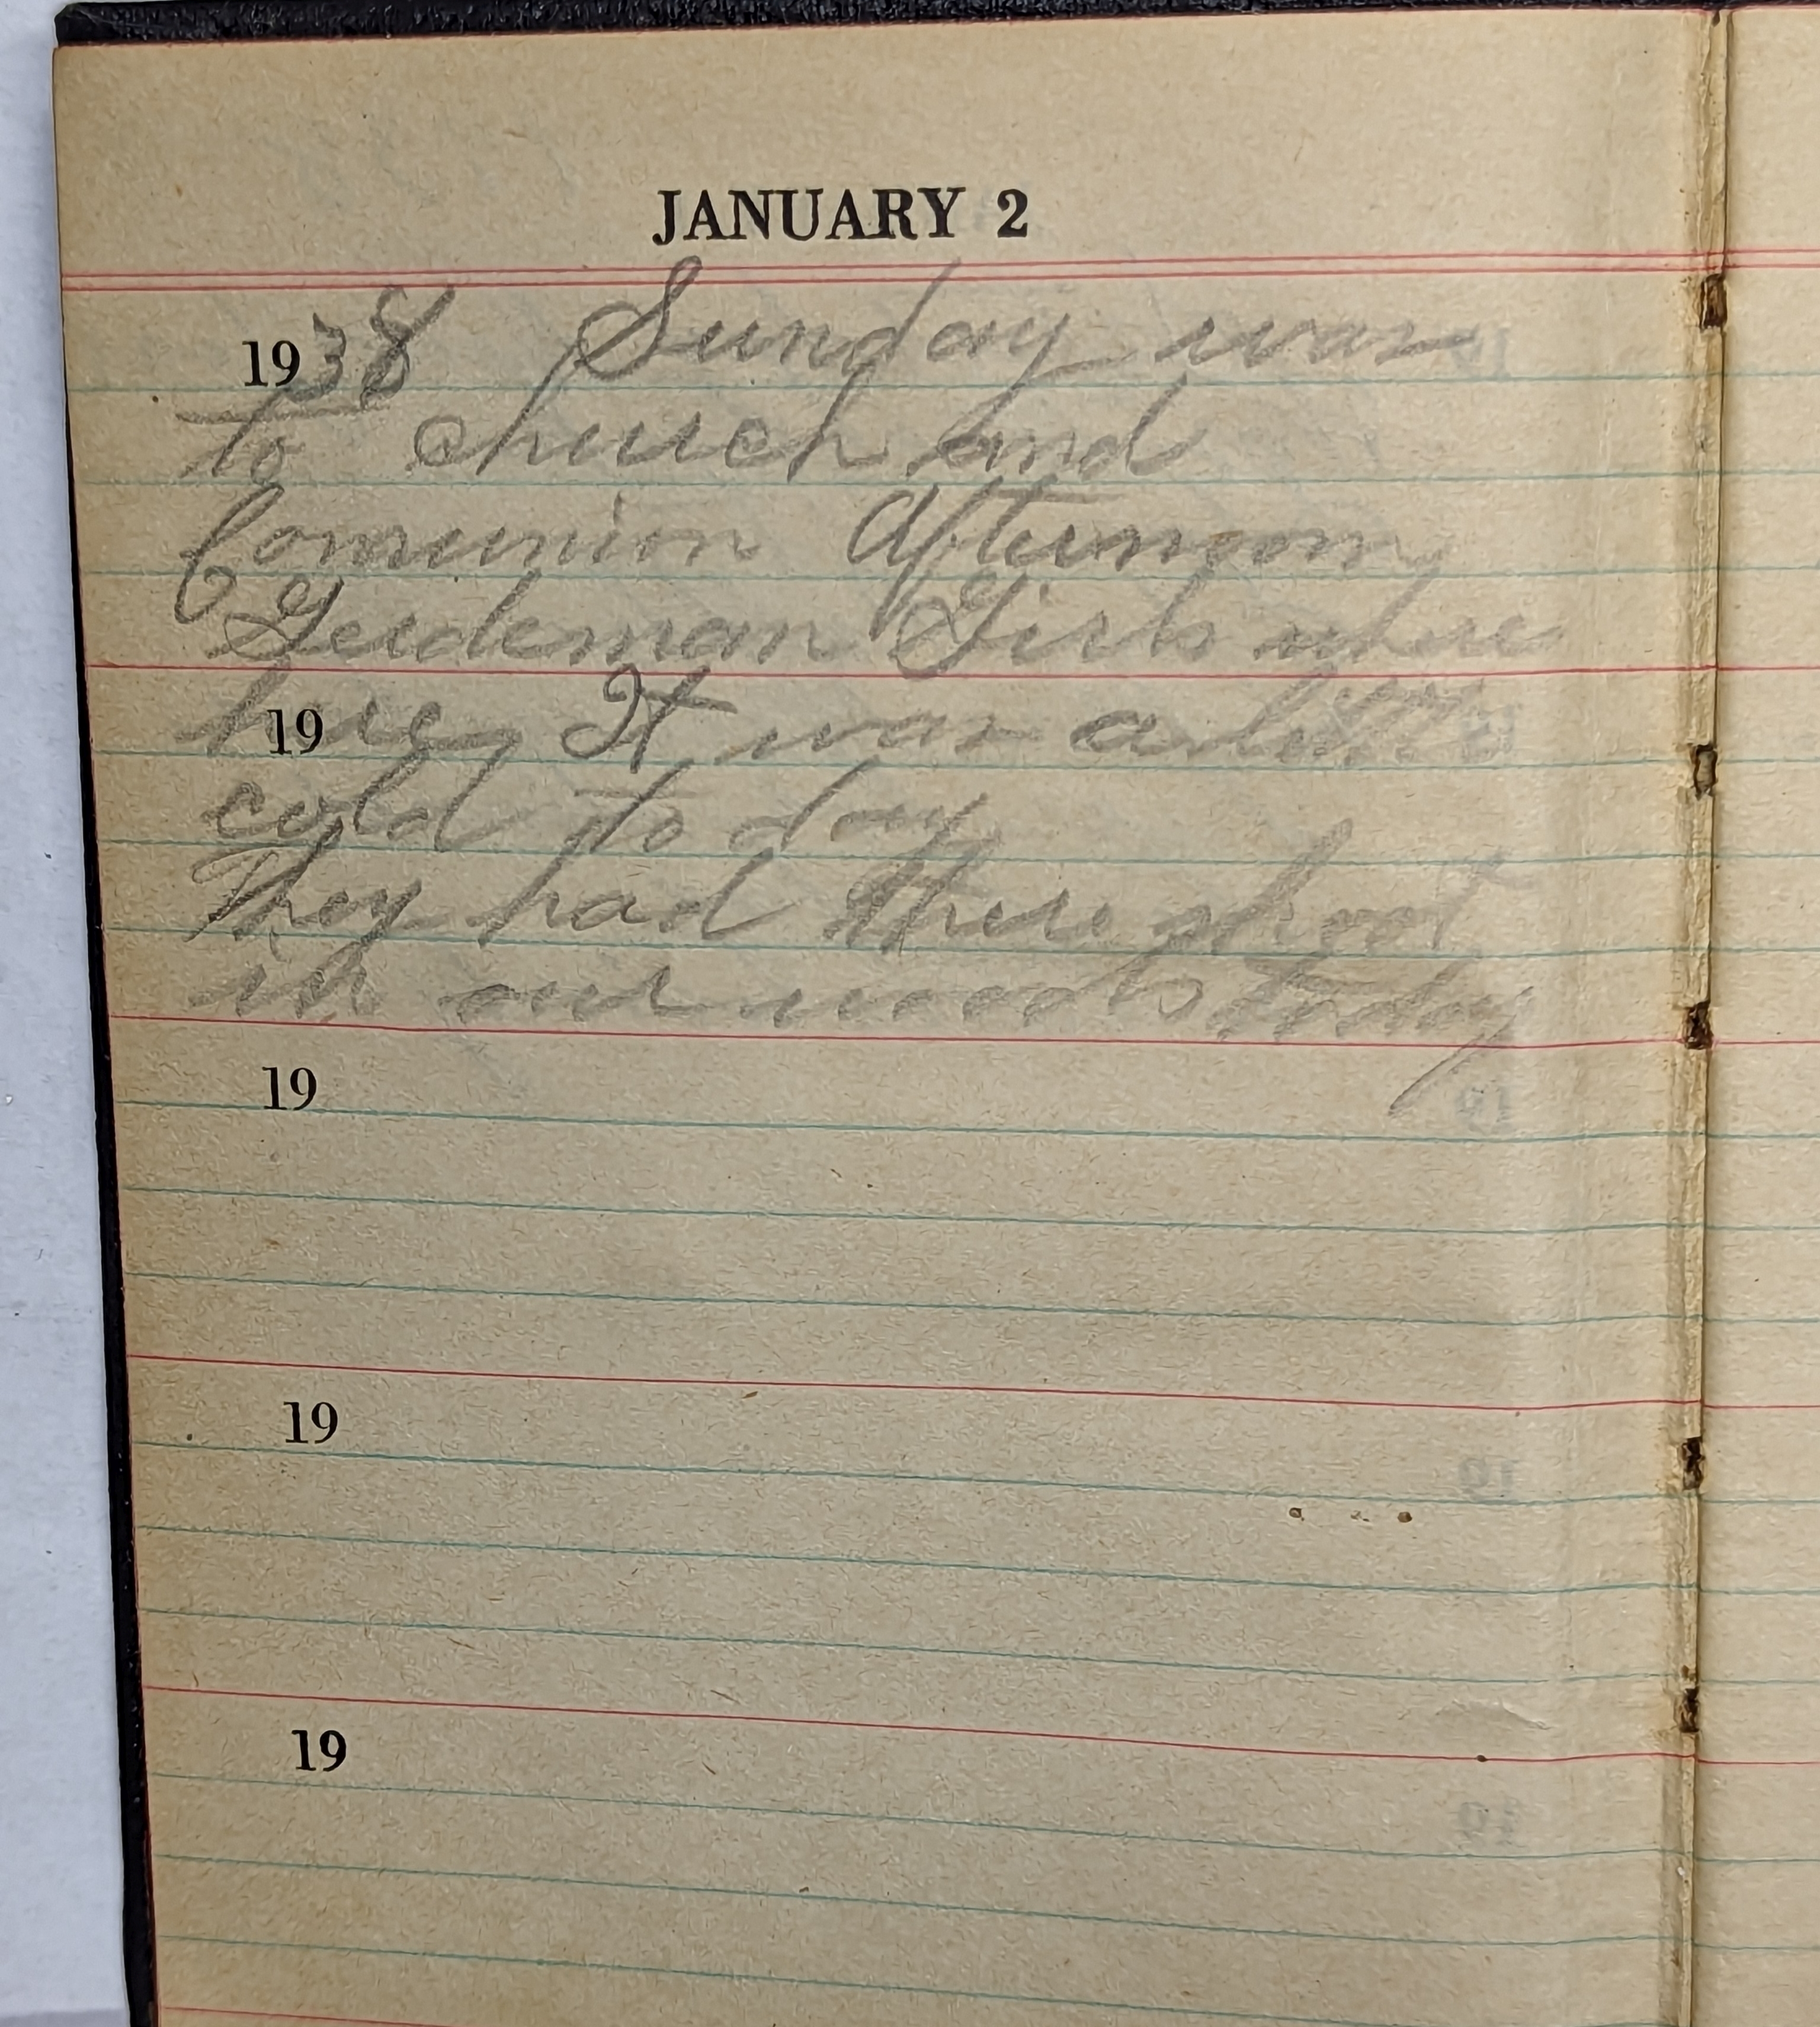 JANUARY 2
1938 Sunday was
to church and
Comunion Afternoon
Geideman Girls where
here It was a little
19
cold to day
They had there shoot
in our woods today
19
19
19